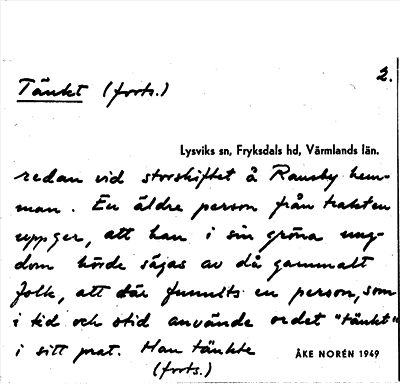 2.
Tänkt (forts.)
Lysviks sn, Fryksdals hd, Värmlands län.
redan vid storskiftet å Ransby hem-
man. En äldre person från trakten
uppger, att han i sin gröna ung-
dom hörde sägas av då gammalt
folk, att där funnits en person, som
i tid och otid använde ordet "tänkt"
i sitt prat. Man tänkte
ÅKE NORÉN 1949
(forts.)